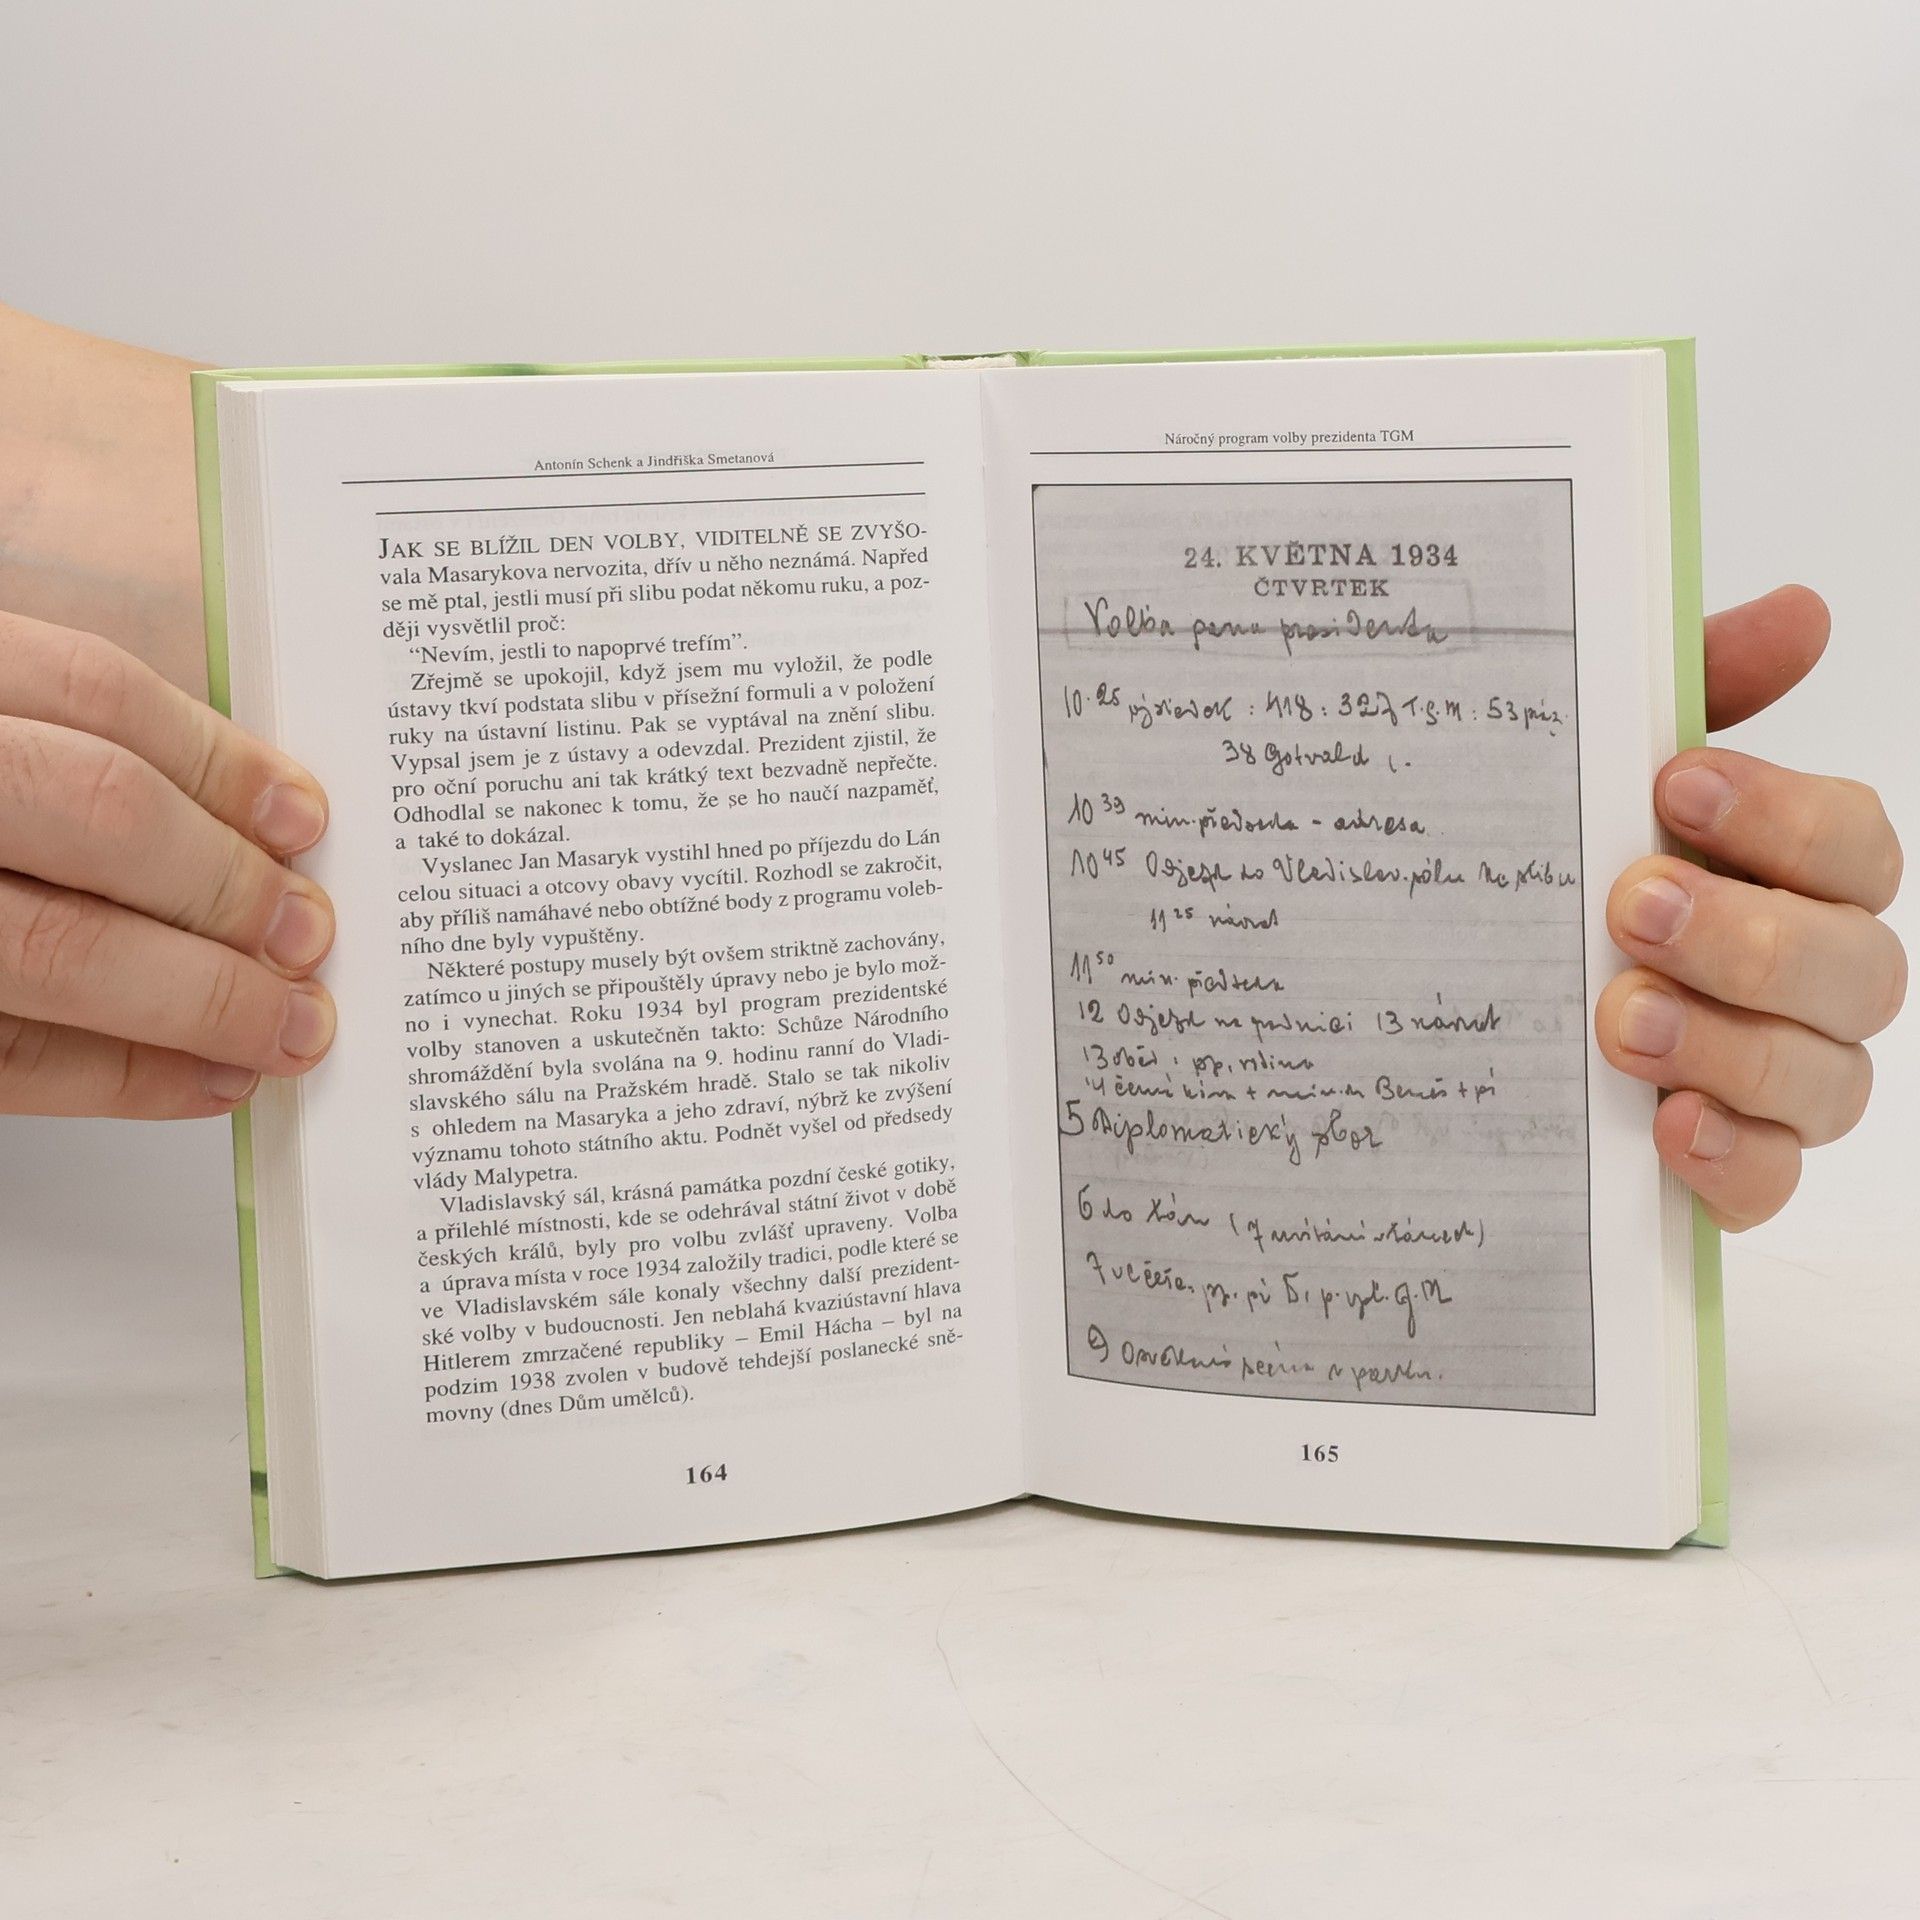 Antonín Schenk a Jindřiška Smetanová
JAK SE BLÍŽIL DEN VOLBY, VIDITELNĚ SE ZVYŠO-
vala Masarykova nervozita, dřív u něho neznámá. Napřed
se mě ptal, jestli musí při slibu podat někomu ruku, a poz-
ději vysvětlil proč:
“Nevím, jestli to napoprvé trefím”.
Zřejmě se upokojil, když jsem mu vyložil, že podle
ústavy tkví podstata slibu v přísežní formuli a v položení
ruky na ústavní listinu. Pak se vyptával na znění slibu.
Vypsal jsem je z ústavy a odevzdal. Prezident zjistil, že
pro oční poruchu ani tak krátký text bezvadně nepřečte.
Odhodlal se nakonec k tomu, že se ho naučí nazpaměť,
a také to dokázal.
Vyslanec Jan Masaryk vystihl hned po příjezdu do Lán
celou situaci a otcovy obavy vycítil. Rozhodl se zakročit,
aby příliš namáhavé nebo obtížné body z programu voleb-
ního dne byly vypuštěny.
Některé postupy musely být ovšem striktně zachovány,
zatímco u jiných se připouštěly úpravy nebo je bylo mož-
no i vynechat. Roku 1934 byl program prezidentské
volby stanoven a uskutečněn takto: Schůze Národního
shromáždění byla svolána na 9. hodinu ranní do Vladi-
slavského sálu na Pražském hradě. Stalo se tak nikoliv
s ohledem na Masaryka a jeho zdraví, nýbrž ke zvýšení
významu tohoto státního aktu. Podnět vyšel od předsedy
vlády Malypetra.
Vladislavský sál, krásná památka pozdní české gotiky,
a přilehlé místnosti, kde se odehrával státní život v době
českých králů, byly pro volbu zvlášť upraveny. Volba
a úprava místa v roce 1934 založily tradici, podle které se
ve Vladislavském sále konaly všechny další prezident-
ské volby v budoucnosti. Jen neblahá kvaziústavní hlava
Hitlerem zmrzačené republiky – Emil Hácha – byl na
podzim 1938 zvolen v budově tehdejší poslanecké sně-
movny (dnes Dům umělců).
164
Náročný program volby prezidenta TGM
24. KVĚTNA 1934
ČTVRTEK
Volba pana presidenta
10.25 výsledek : 418 : 327 T.G.M : 53 práz.
38 Gotvald
10 39 min. předseda - adresa
10 45 Odjezd do Vladislav. sálu ke slibu
11 25 návrat
11 50 min. předseda
12 Odjezd na radnici 13 návrat
13 oběd : pp. rodina
Beneš + pí
5 Diplomatický sbor
6 do Lán (7 uvítání v Lánech)
7 večeře
9 v parku.
165